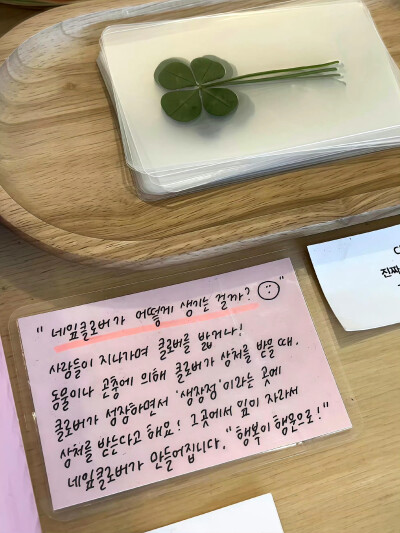 "네잎클로버가 어떻게 생기는 걸까?"
사람들이 지나가며 클로버를 밟거나!
동물이나 곤충에 의해 클로버가 상처를 받을 때.
클로버가 성장하면서 '생장점'이라는 곳에
상처를 받는다고 해요! 그곳에서 잎이 자라서
네잎클로버가 만들어집니다. "행복이 행운으로!"
진짜